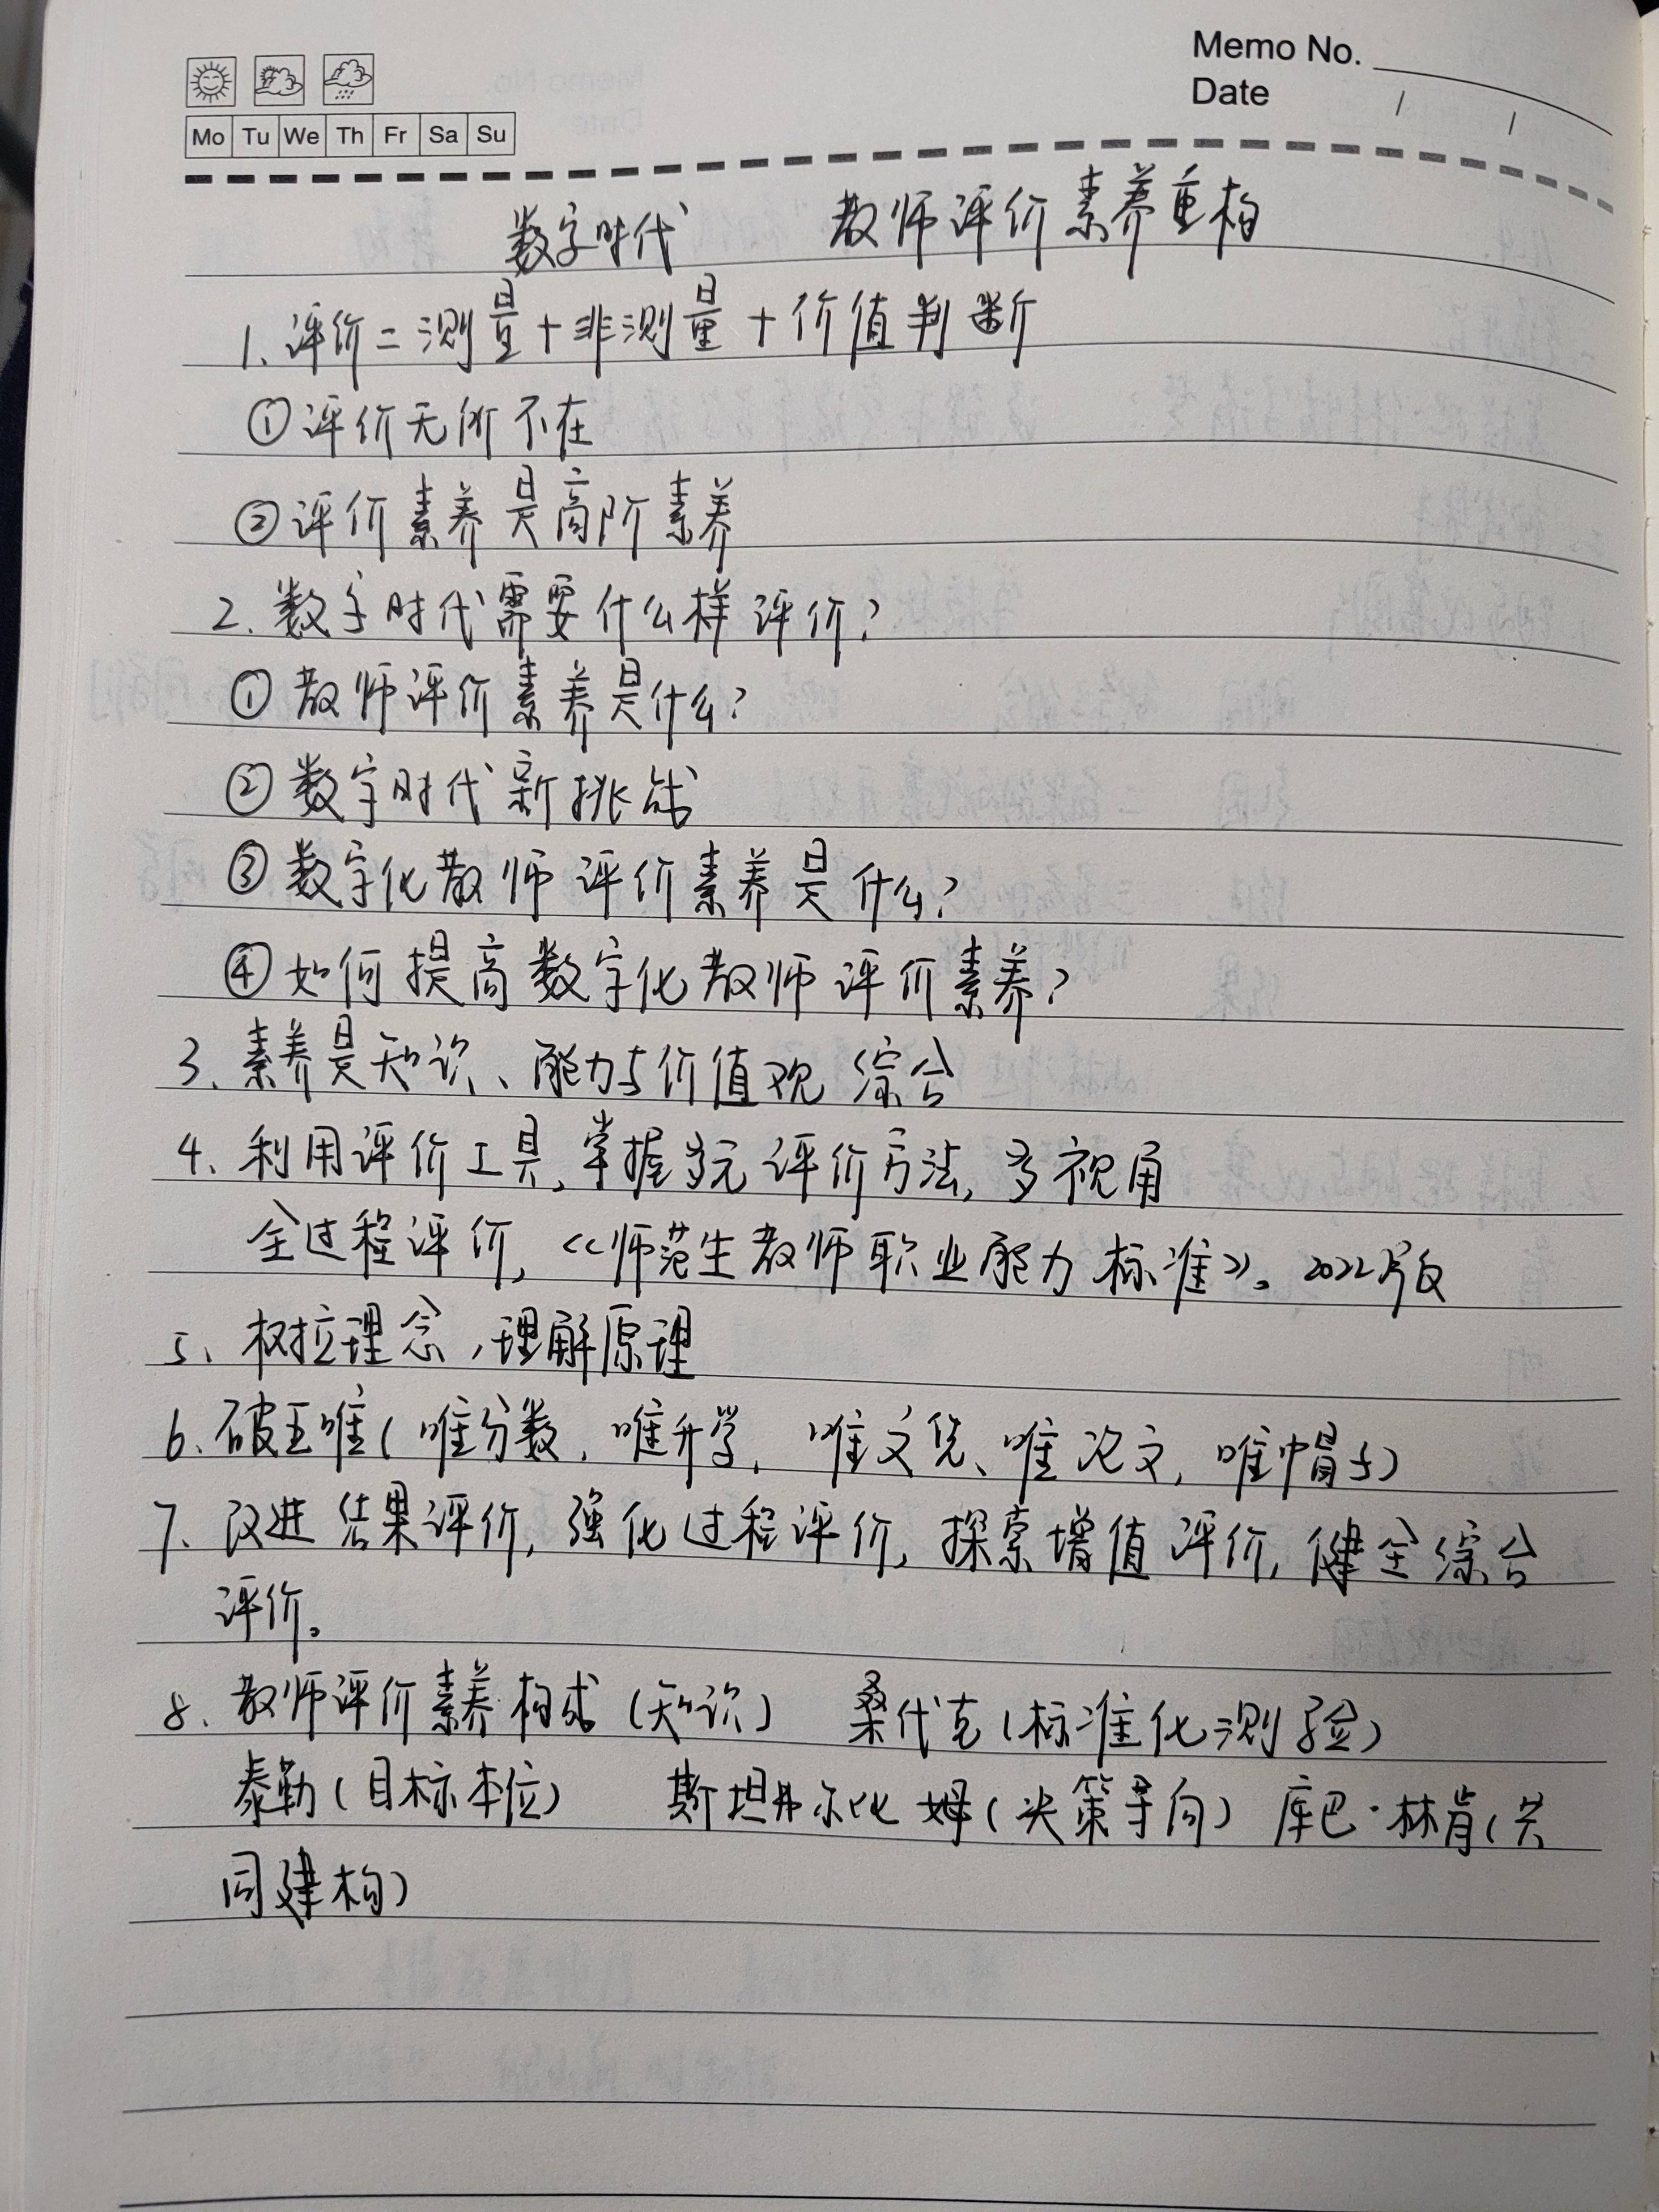 Memo No.
Date / /
Mo Tu We Th Fr Sa Su
数字时代 教师评价素养重构
1. 评价=测量+非测量+价值判断
①评价无所不在
②评价素养是高阶素养
2. 数字时代需要什么样评价?
①教师评价素养是什么?
②数字时代新挑战
③数字化教师评价素养是什么?
④如何提高数字化教师评价素养?
3、素养是知识、能力与价值观综合
4、利用评价工具,掌握多元评价方法,多视角
全过程评价,《师范生教师职业能力标准》。2022版
5、树立理念,理解原理
6、破五唯(唯分数,唯升学,唯文凭、唯论文,唯帽子)
7、改进结果评价,强化过程评价,探索增值评价,健全综合
评价。
8、教师评价素养构成(知识) 桑代克(标准化测验)
泰勒(目标本位) 斯坦弗尔比姆(决策导向) 库巴·林肯(共
同建构)